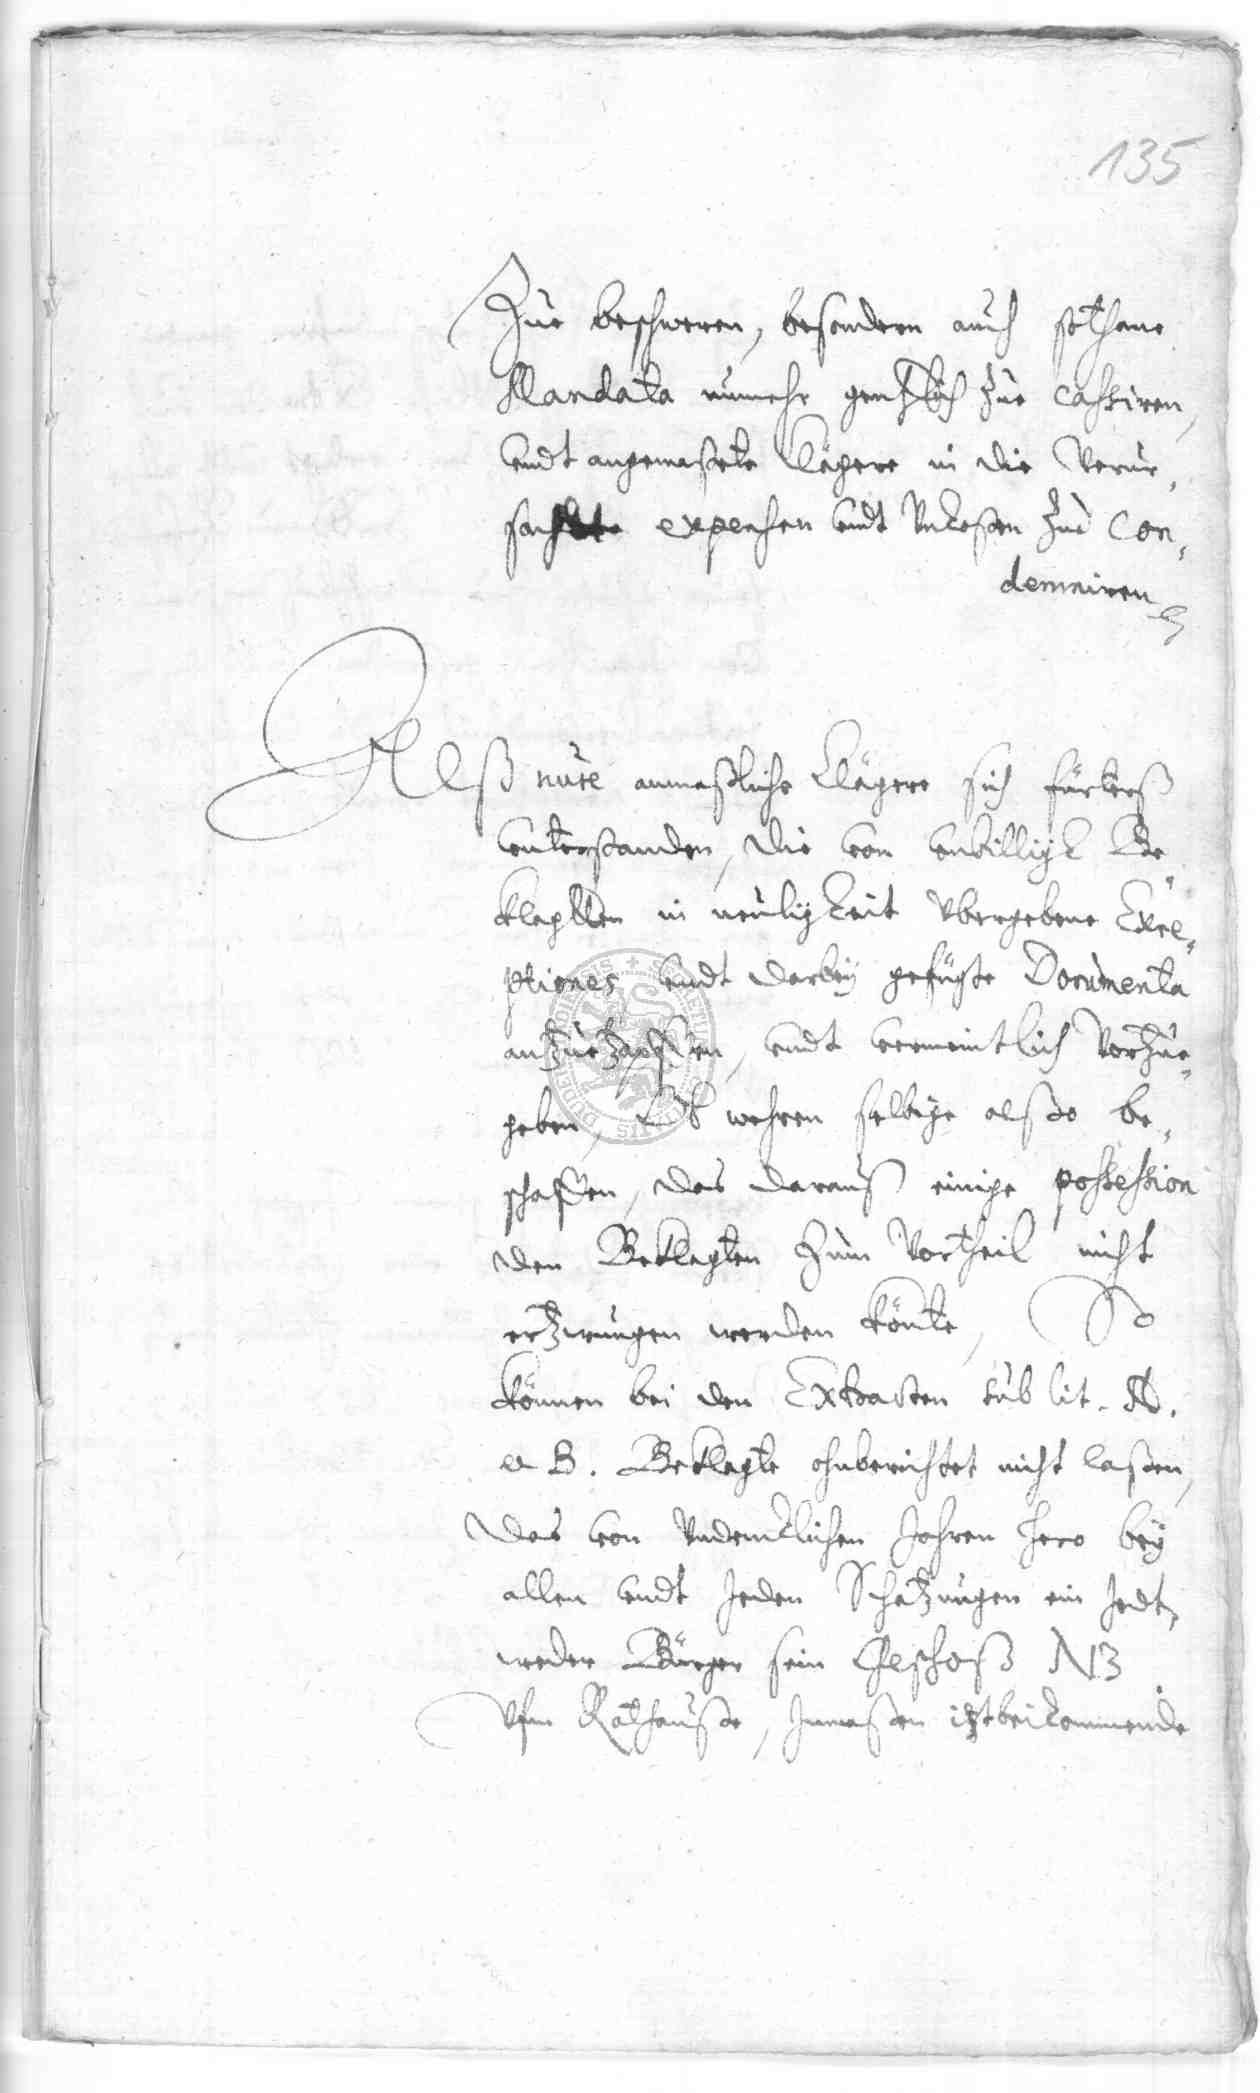 135
Zue beschweren, besondern auch sothane
Mandata nunmehr gentzlich zue cassiren,
undt angemaßete Clägere in die verur,
sachte expensen undt Unkosten zue Con,
demniren
Alß nuhn anmaßliche Clägere sich fürters
unterstanden, die von unbilligk Be
klagtten in neuligkeit ubergebene Excep,
ptiones undt darbey gefügte Documenta
anzuezapffen, undt vermeintlich vorzue,
geben, Ob wehren selbige alßo be,
schaffen, das darauß einige possession
den Beklagten zum Vortheil nicht
erzwungen werden könte, So
können bei den Extracten sub lit. A.
et B. Beklagte ohnberichtet nicht laßen,
das von undencklichen Jahren hero bey
allen undt Jeden Schatzungen ein Jedt,
weder Bürger sein Geschoß NB
ufm Rathauße, Inmaßen itztbeikommende